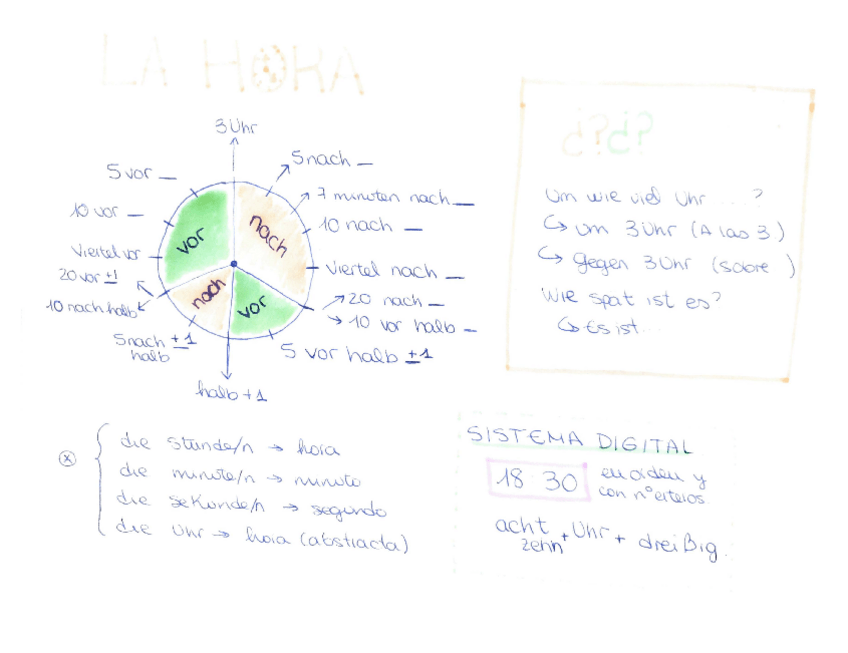 LA HORA
3 Uhr
5 nach —
7 minuten nach —
10 nach —
Viertel nach —
20 nach —
10 vor halb —
5 vor halb ±1
halb +1
5 nach ±1
halb
10 nach halb
20 vor ±1
Viertel vor —
10 vor —
5 vor —
vor
nach
nach
vor
¿??
Um wie viel Uhr ....?
↳ um 3 Uhr (A las 3)
↳ gegen 3 Uhr (sobre )
Wie spat ist es?
↳ Es ist...
die stunde/n → hora
die minute/n → minuto
die sekunde/n → segundo
die Uhr → hora (abstracta)
SISTEMA DIGITAL
18 30 en orden y
con nº enteros.
acht + Uhr + dreißig.
zehn